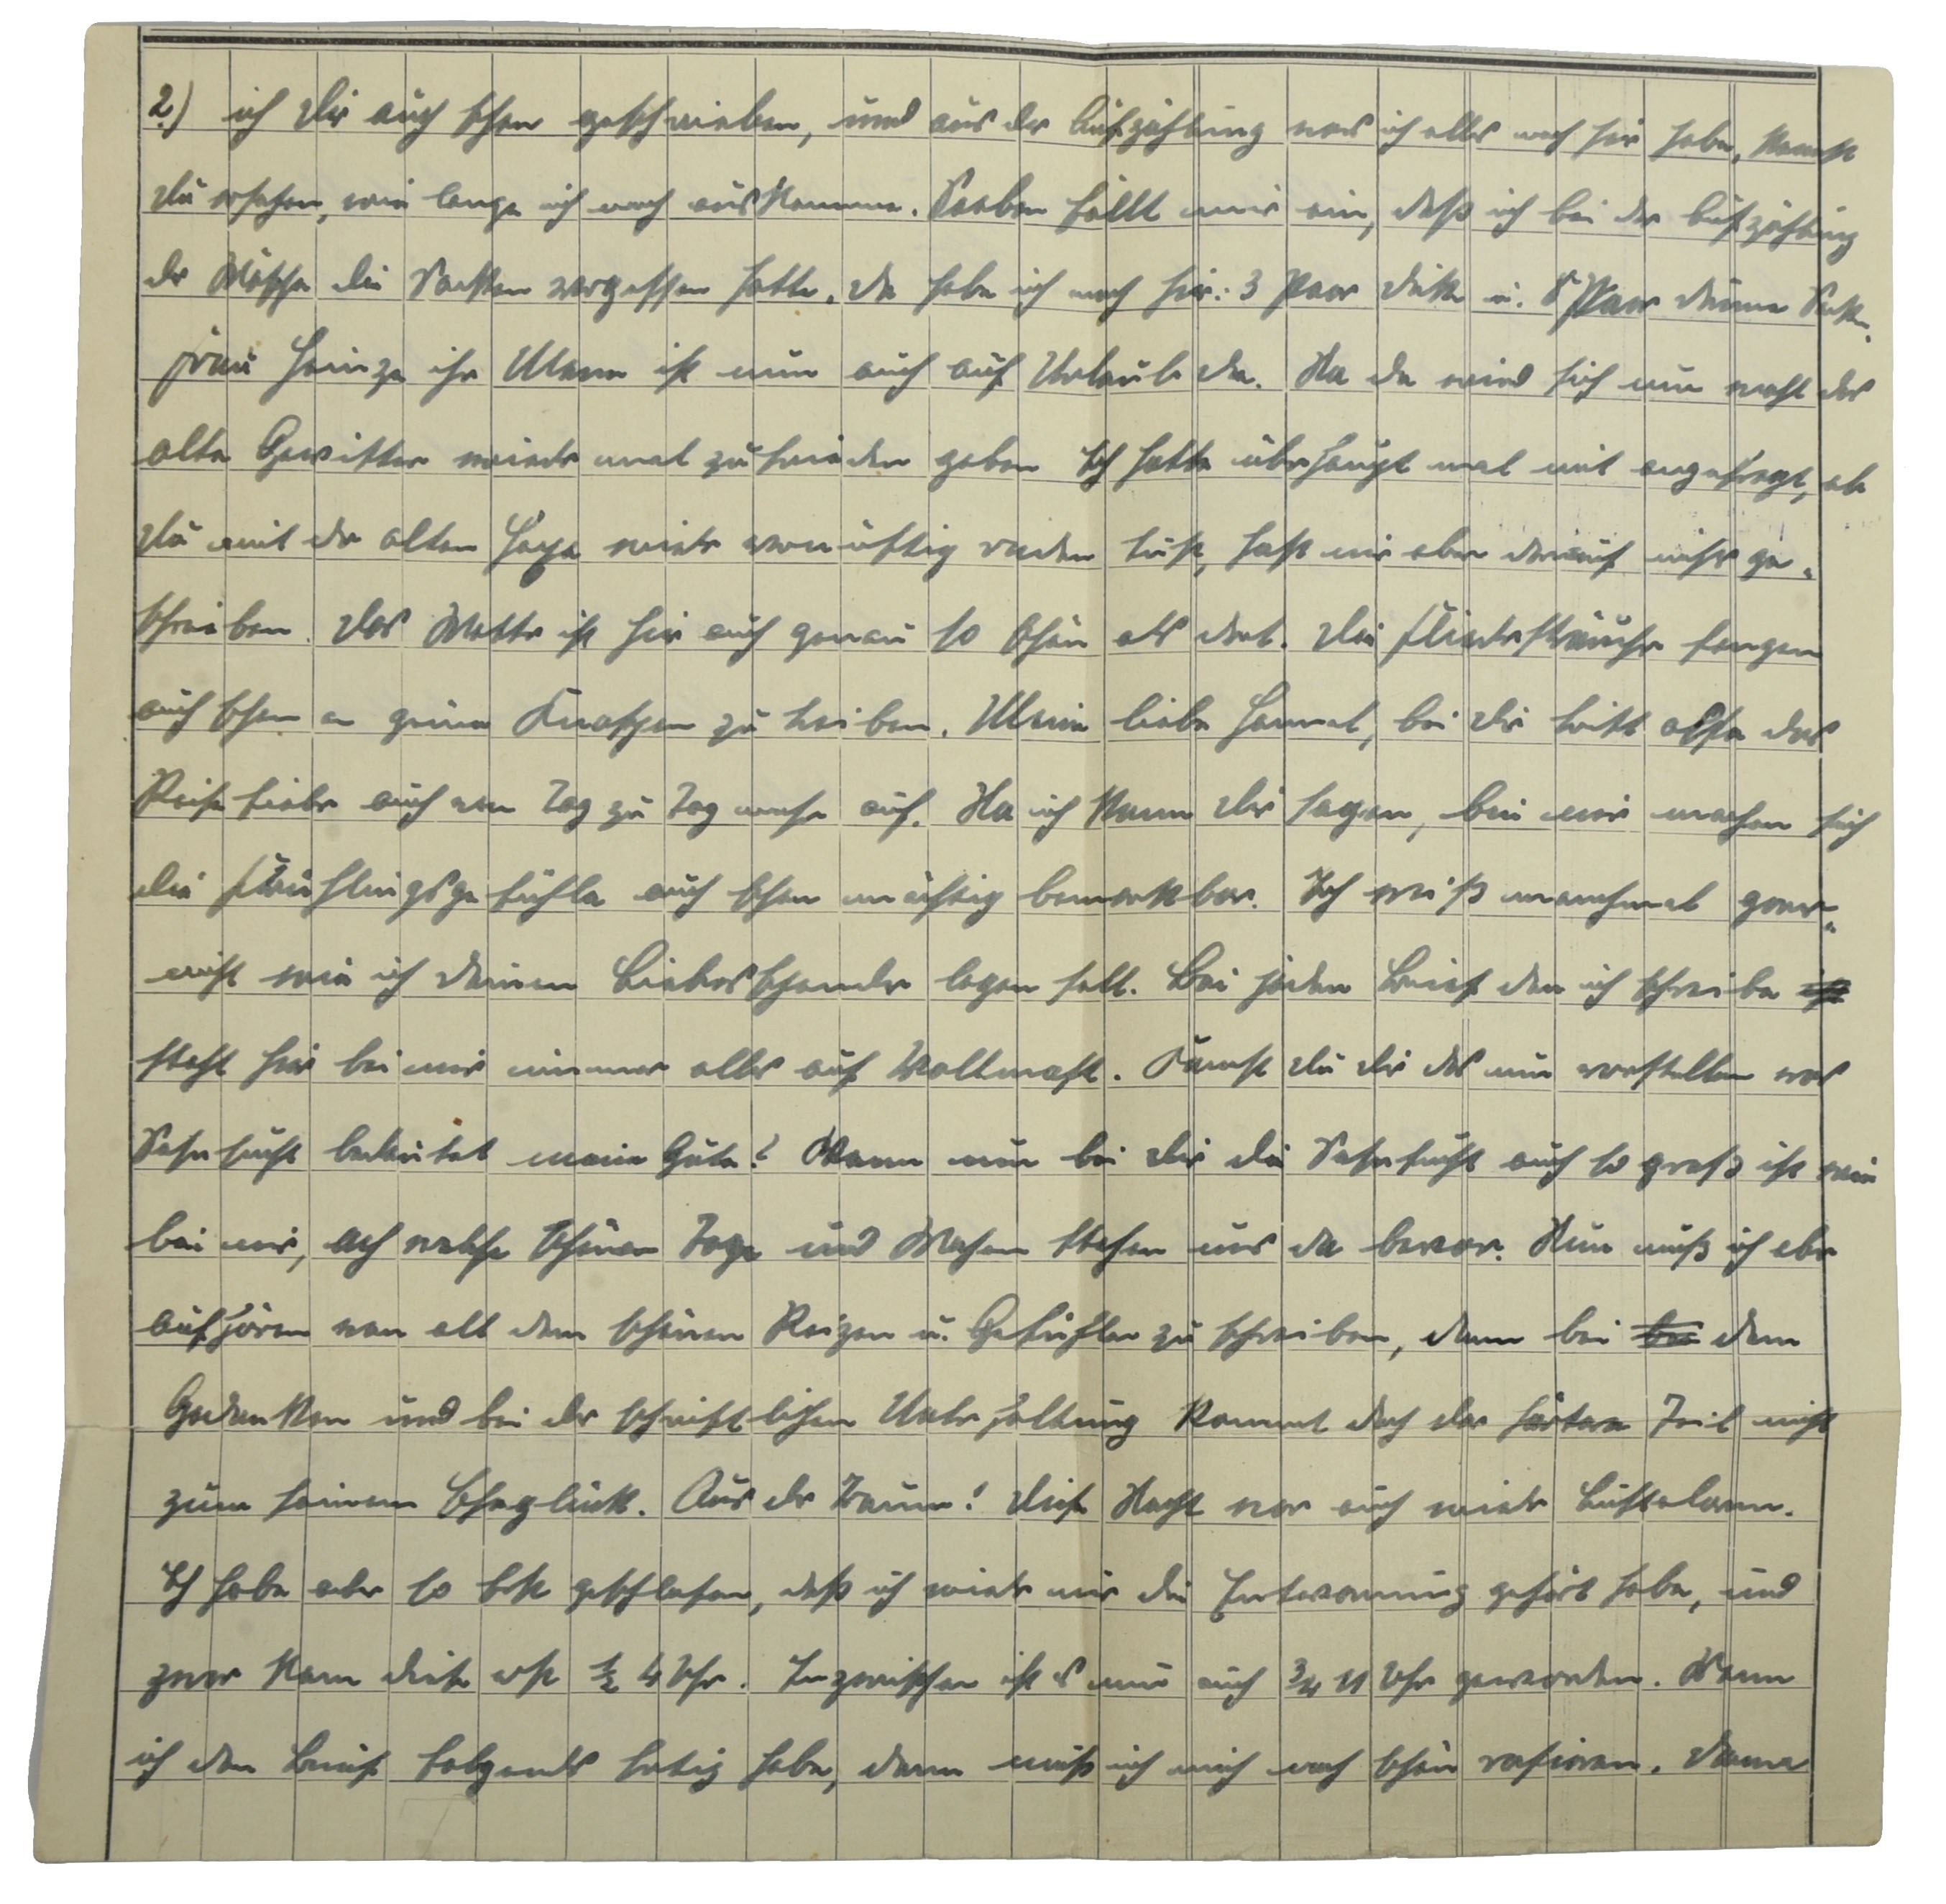 2.) ich Dir auch schon geschrieben, und aus der Aufzählung was ich alles noch hier habe, kannst
Du ersehen, wie lange ich noch auskomme. Soeben fällt mir ein, daß ich bei der Aufzählung
der Wäsche die Socken vergessen hatte. Da habe ich noch hier: 3 Paar dicke u. 5 Paar dünne Socken.
Frau Heinze ihr Mann ist nun auch auf Urlaub da. Na da wird sich nun wohl das
alte Gewitter wieder mal zufrieden geben Ich hatte überhaupt mal mit angefragt, ob
Du mit der alten Hexe wieder vernüftig reden tust, hast mir aber darauf nichts ge-
schrieben. Das Wetter ist hier auch genau so schön als dort. Die Fliedersträucher fangen
auch schon an grüne Knospen zu treiben. Meine liebe Hannel, bei Dir tritt also das
Reisefieber auch von Tag zu Tag mehr auf. Na ich kann Dir sagen, bei mir machen sich
die Frühlingsgefühle auch schon mächtig bemerkbar. Ich weiß manchmal garr-
nicht wie ich deinen Liebesspender legen soll. Bei jeden Brief den ich schreibe ist
steht hier bei mir immer alles auf Vollmacht. Kannst Du Dir das nun vorstellen was
Sehnsucht bedeutet meine Gute? Wenn nun bei Dir die Sehnsucht auch so groß ist wie
bei mir, ach welche schönen Tage und Wochen stehen uns da bevor. Nun muß ich aber
aufhören von all dem schönen Reizen u. Gefühlen zu schreiben, denn bei den
Gedanken und bei der schriftlichen Unterhaltung kommt doch der härtere Teil nicht
zum seinem Eheglück. Aus der Traum! Diese Nacht war auch wieder Luftalarm.
Ich habe aber so fest geschlafen, daß ich wieder nur die Entwarnung gehört habe, und
zwar kam diese erst ½ 4 Uhr. Inzwischen ist es nun auch ¾ 11 Uhr geworden. Wenn
ich den Brief folgends fertig habe, dann muß ich mich noch schön rasieren. Denn